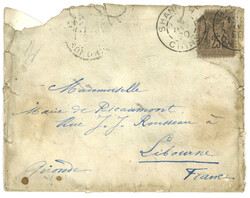 SHANG
CHINE
25
Mademoiselle
Marie de Ricaumont
Rue J. J. Rousseau à
Libourne
Gironde
France